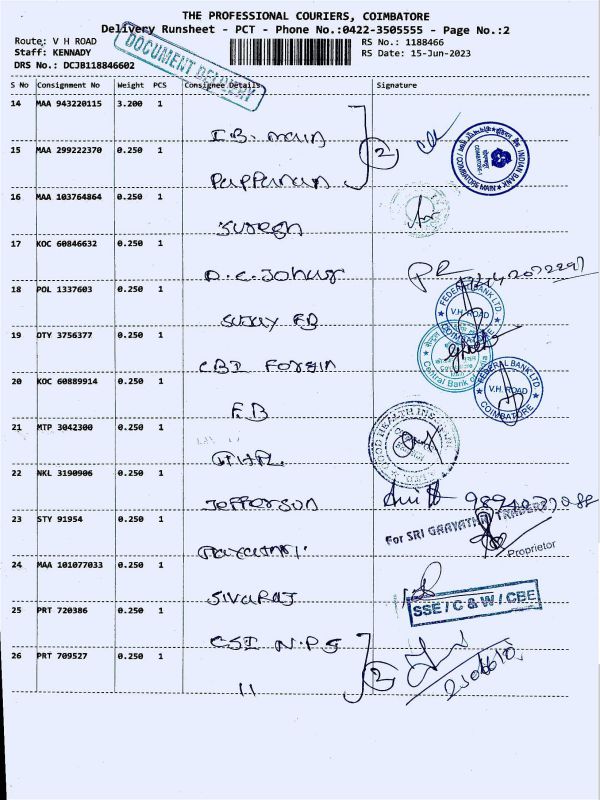 THE PROFESSIONAL COURIERS, COIMBATORE
Delivery Runsheet - PCT - Phone No.:0422-3505555 - Page No.:2
Route: V H ROAD RS No.: 1188466
Staff: KENNADY RS Date: 15-Jun-2023
DRS No.: DCJB118846602
DOCUMENT DELIVERY
S No Consignment No Weight PCS Consignee Details Signature
14 MAA 943220115 3.200 1
I.B. main
2
INDIAN BANK
COIMBATORE MAIN
15 MAA 299222370 0.250 1
16 MAA 103764864 0.250 1
Suresh
17 KOC 60846632 0.250 1
18 POL 1337603 0.250 1
FEDERAL BANK LTD.
V.H. ROAD
COIMBATORE
19 DTY 3756377 0.250 1
CBI
Central Bank of India
20 KOC 60889914 0.250 1
F.B
FEDERAL BANK LTD.
V.H. ROAD
COIMBATORE
21 MTP 3042300 0.250 1
22 NKL 3190906 0.250 1
Jefferson
23 STY 91954 0.250 1
For SRI GAAYATHRI TRADERS
Proprietor
24 MAA 101077033 0.250 1
Sivaraj
SSE / C & W / CBE
25 PRT 720386 0.250 1
CSI N.P.S
2
26 PRT 709527 0.250 1
11